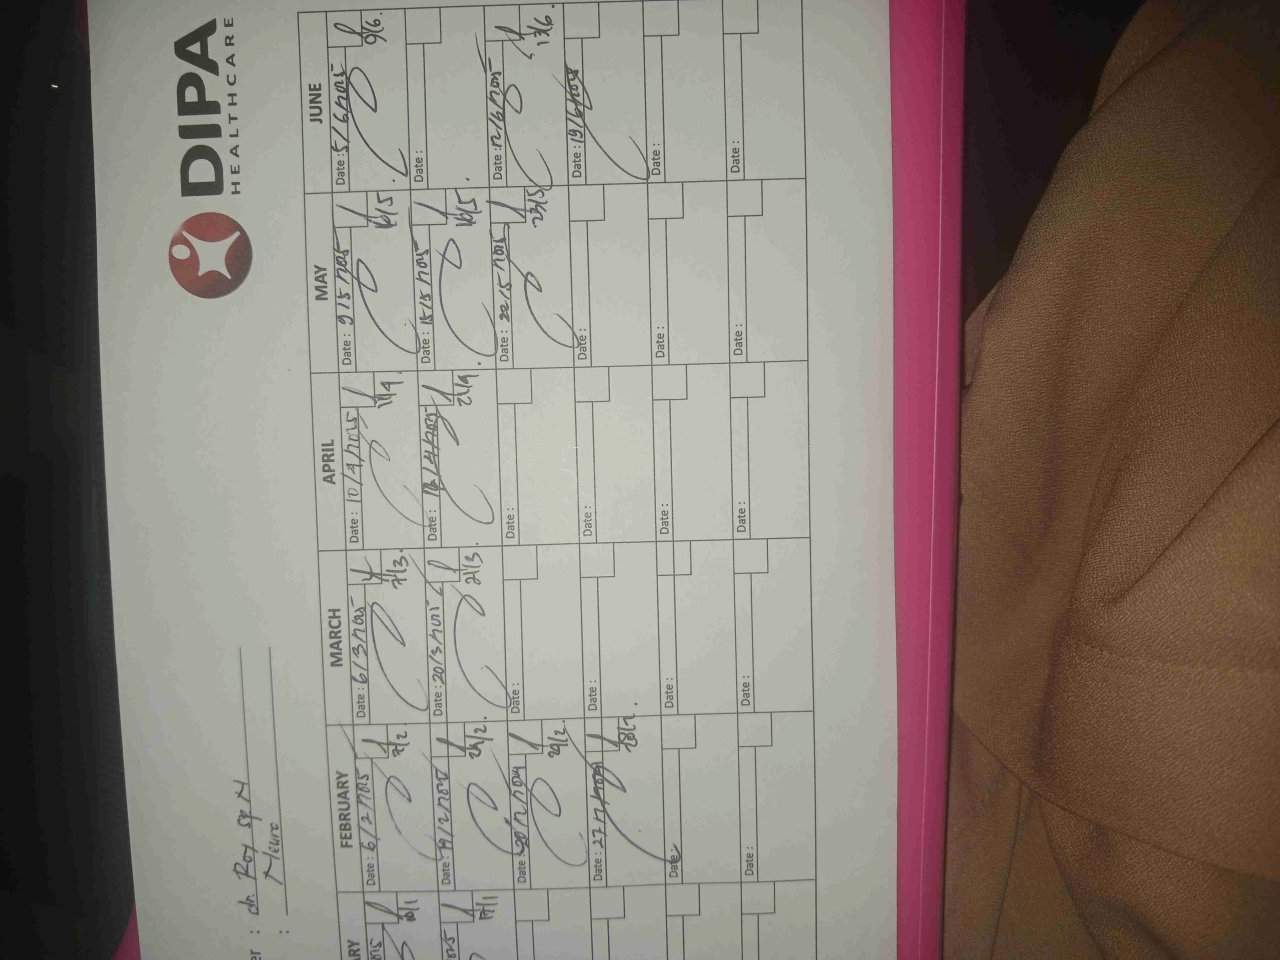 DIPA
HEALTHCARE
er : dr. Roy Sp N
: Neuro
ARY
FEBRUARY
MARCH
APRIL
MAY
JUNE
Date : 6/2/2025
7/2
Date : 6/3/2025
7/3.
Date : 10/4/2025
11/4.
Date : 9/5/2025
16/5.
Date : 5/6/2025
9/6.
17/1
Date : 19/2/2025
24/2.
Date : 20/3/2025
21/3.
Date :
21/4.
Date : 15/5/2025
16/5.
Date :
Date :
24/2.
Date :
Date :
Date : 22/5/2025
23/5
Date : 12/6/2025
13/6.
Date : 27
28/2.
Date :
Date :
Date :
Date : 19/6/2025
Date :
Date :
Date :
Date :
Date :
Date :
Date :
Date :
Date :
Date :